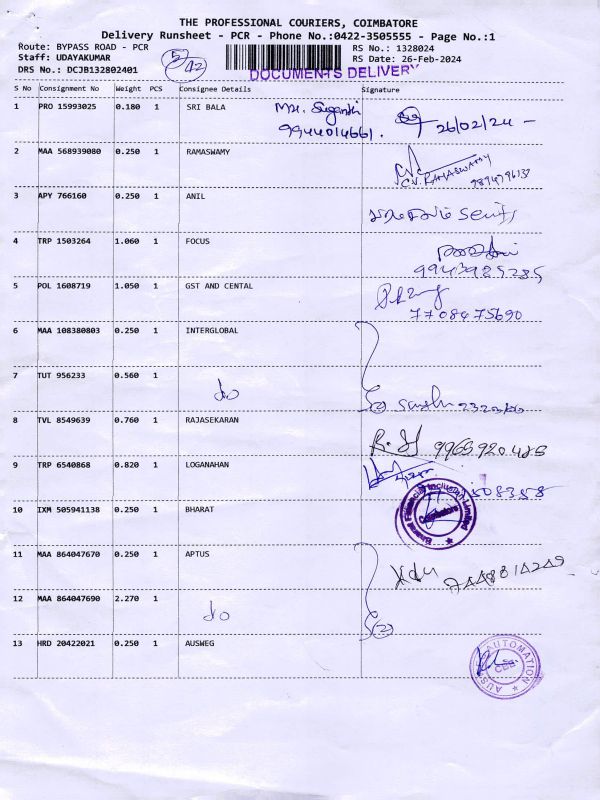 THE PROFESSIONAL COURIERS, COIMBATORE
Delivery Runsheet - PCR - Phone No.:0422-3505555 - Page No.:1
Route: BYPASS ROAD - PCR
RS No.: 1328024
Staff: UDAYAKUMAR
RS Date: 26-Feb-2024
DRS No.: DCJB132802401
DOCUMENTS DELIVERY
S No Consignment No Weight PCS Consignee Details Signature
1 PRO 15993025 0.180 1 SRI BALA
9944014661. 26/02/24 -
2 MAA 568939080 0.250 1 RAMASWAMY
C.V. RAMASWAMY
3 APY 766160 0.250 1 ANIL
4 TRP 1503264 1.060 1 FOCUS
9943985285
5 POL 1608719 1.050 1 GST AND CENTAL
7708475690
6 MAA 108380803 0.250 1 INTERGLOBAL
7 TUT 956233 0.560 1
do
8 TVL 8549639 0.760 1 RAJASEKARAN
9965920485
9 TRP 6540868 0.820 1 LOGANAHAN
10 IXM 505941138 0.250 1 BHARAT
Bharat Financial Inclusion Limited
Coimbatore
11 MAA 864047670 0.250 1 APTUS
12 MAA 864047690 2.270 1
do
13 HRD 20422021 0.250 1 AUSWEG
AUTOMATION
CBE